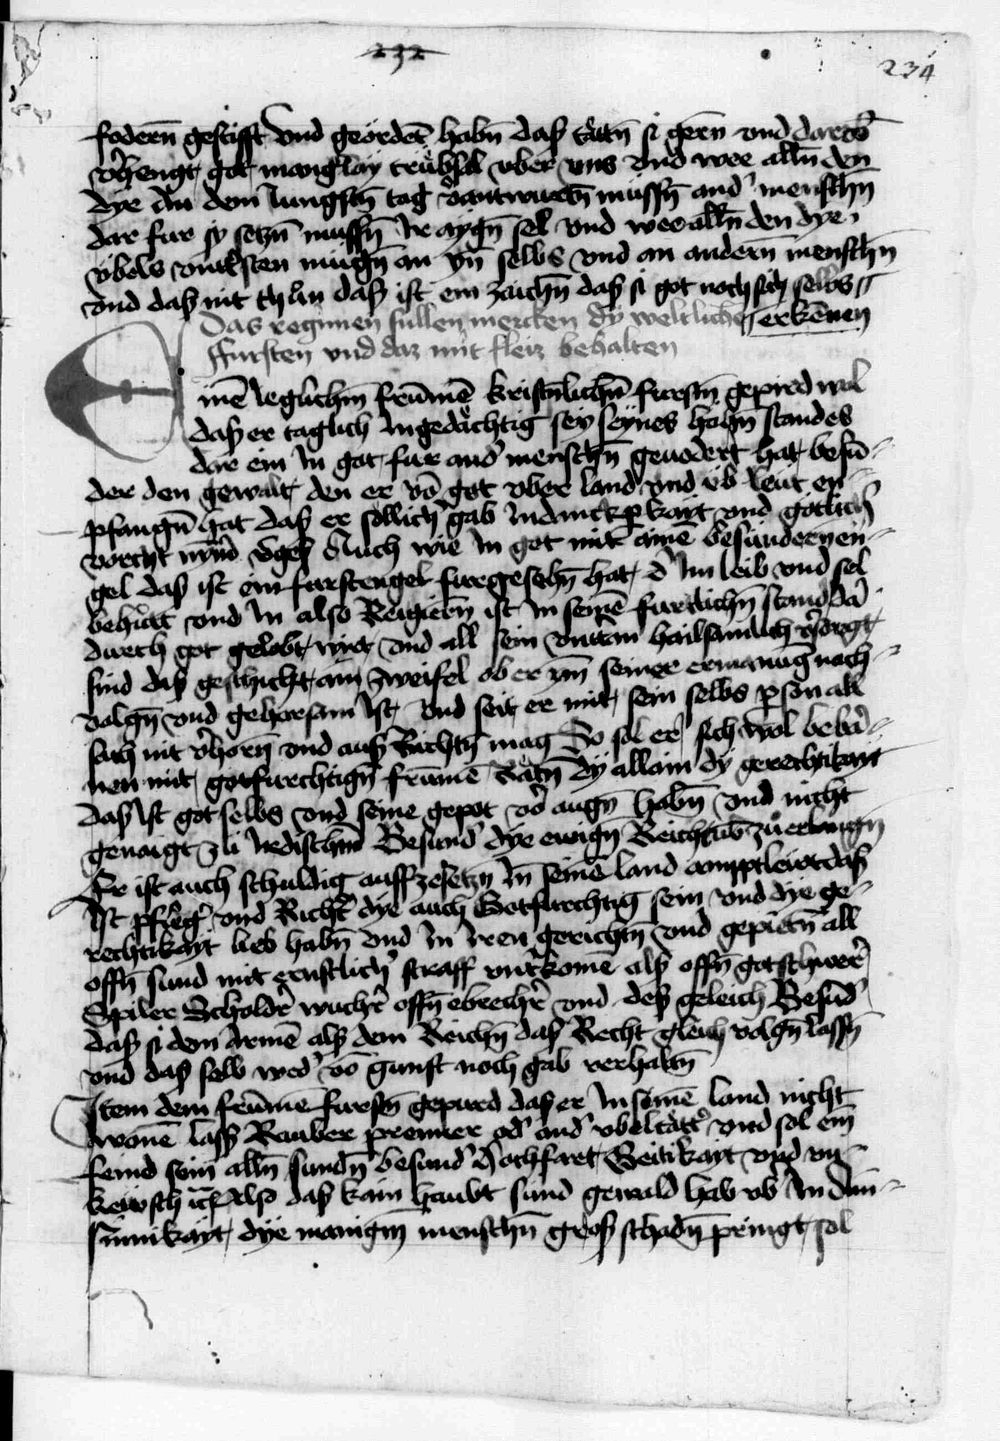 232
234
fodern̄ gestifft vnd geordet habn̄ daß tattn̄ si gern vnd darvō
v̓hengt got manig̓lay trübsal vber vns vnd wee alln̄ den
dye An dem Jungstn̄ tag v̓antwurtn̄ müssn̄ and̓ menschn̄
dar fur sy setzn̄ mussn̄ Ir aygn̄ sel vnd wee alln̄ den dye
übels vntersten mugn̄ an yn̄ selbs vnd an andern̄ menschn̄
vnd daß nit thun daß ist ein zaichn̄ daß si got noch sich selbs
Das regimen sullen mercken dy weltliche erkēnen
ffursten vnd daz mit fleiz behalten
Einē yeglichm̄ frūmē kristn̄lichn̄ furstn̄ gepird wol
daß er taglich Ingedächtig sey seynes hohn̄ standes
dar ein In got fur and̓ menschn̄ geuodert hat besū
der den gewalt den er vō got vber land vnd vb̓ leut en
pfangn̄ hat daß er sollich̓ gab Indanckp̄kayt vnd gotlich̓
vorcht Auch wie In got mit ainē besundern̄ en
gel daß ist ein furstengel furgesehn̄ hat d̓ Im leib vnd sel
behütt vnd In also Regiern̄ ist In seinē furstlichn̄ stand dā
durch got gelobt wirt vnd all sein vntt̓an hailsamlich v̓sorgt
sind daß geschicht ain zweifel ob er ym̄ seiner ermanuḡ nach
volgn̄ vnd gehorsam ist Vnd seit er mit sein selbs p̄son all
sach nit v̓horn̄ vnd auß Richtn̄ mag So sol er sich wol bebā
nen mit gotfurchtign̄ frūmē Rätn̄ dy allain dy gerechtikait
daß ist got selbs vnd seine gepot vō augn̄ habn̄ vnd nicht
genaigt zu Irdischm̄ Besund̓ dye ewign̄ Reichtūb zu̓ erlangn̄
Er ist auch schuldig auffzesetzn̄ In̄ seinē land ampptlewt daß
ist pfleg̓ vnd Richt̓ dye auch Gotfurchtig sein vnd dye ge
rechtikayt lieb habn̄ vnd In Iren gerichtn̄ vnd gepietn̄ all
offn̄ sund mit ernstlich̓ straff vnt̓komē alß offn̄ gotschwer̓
Spiler Scholdr̓ wuchr̓ offn̄ ebrechr̓ vnd deß geleich Besūd̓
daß si dem Armē alß dem Reichn̄ daß Recht gleich volgn̄ lassn̄
vnd daß selb wed̓ vō gunst noch gab verhaltn̄
Item dem frūmē furstn̄ gepurd daß er In seinē land nicht
wonē lass Rauber prenner od̓ and̓ vbeltätt̓ vnd sol ein̄
feind sein alln̄ sundn̄ besund̓ Hochfart Geitikayt vnd vn
kewsch also daß kain haubt sund gewald hab vb̓ In dan̄
sinnikayt dye manign̄ menschn̄ groß schadn̄ pringt sol